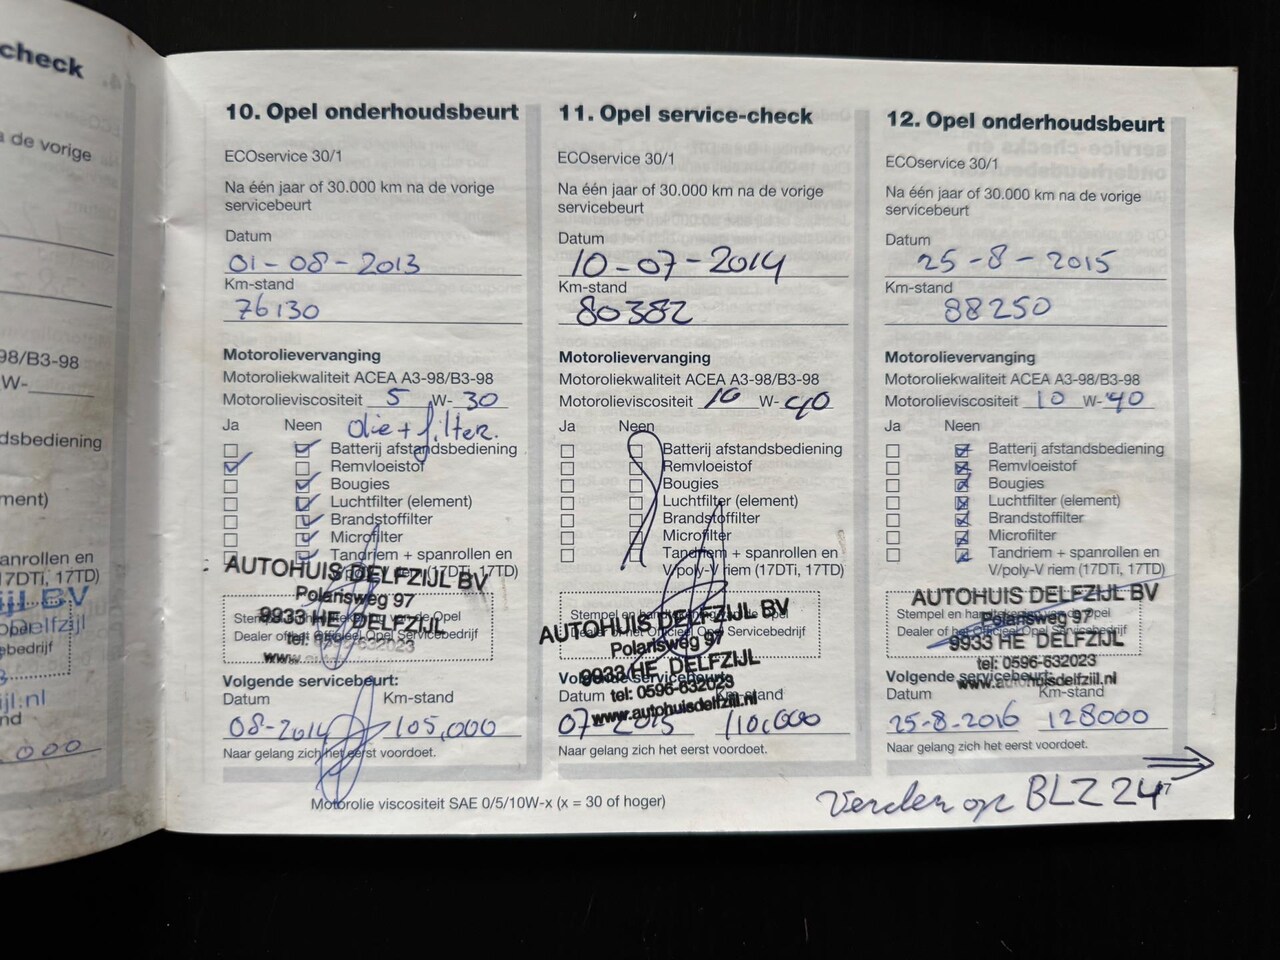 check
a de vorige
98/B3-98
W-
dsbediening
ement)
panrollen en
17DTi, 17TD)
jl BV
Delfzijl
bedrijf
jl.nl
nd
000
10. Opel onderhoudsbeurt
ECOservice 30/1
Na één jaar of 30.000 km na de vorige
servicebeurt
Datum
01-08-2013
Km-stand
76130
Motorolievervanging
Motoroliekwaliteit ACEA A3-98/B3-98
Motorolieviscositeit 5 W- 30
Ja Neen olie + filter.
Batterij afstandsbediening
Remvloeistof
Bougies
Luchtfilter (element)
Brandstoffilter
Microfilter
Tandriem + spanrollen en
V/poly-V riem (17DTi, 17TD)
AUTOHUIS DELFZIJL BV
Polarisweg 97
Stempel en handtekening van de Opel
9933 HE DELFZIJL
Dealer of het Officieel Opel Servicebedrijf
tel: 0596-632023
www.
Volgende servicebeurt:
Datum Km-stand
08-2014 105,000
Naar gelang zich het eerst voordoet.
11. Opel service-check
ECOservice 30/1
Na één jaar of 30.000 km na de vorige
servicebeurt
Datum
10-07-2014
Km-stand
80382
Motorolievervanging
Motoroliekwaliteit ACEA A3-98/B3-98
Motorolieviscositeit 10 W- 40
Ja Neen
Batterij afstandsbediening
Remvloeistof
Bougies
Luchtfilter (element)
Brandstoffilter
Microfilter
Tandriem + spanrollen en
V/poly-V riem (17DTi, 17TD)
Stempel en handtekening van de Opel
AUTOHUIS DELFZIJL BV
Dealer of het Officieel Opel Servicebedrijf
Polarisweg 97
9933 HE DELFZIJL
Volgende servicebeurt:
tel: 0596-632023
Datum Km-stand
www.autohuisdelfzijl.nl
07-2015 110,000
Naar gelang zich het eerst voordoet.
12. Opel onderhoudsbeurt
ECOservice 30/1
Na één jaar of 30.000 km na de vorige
servicebeurt
Datum
25-8-2015
Km-stand
88250
Motorolievervanging
Motoroliekwaliteit ACEA A3-98/B3-98
Motorolieviscositeit 10 W- 40
Ja Neen
Batterij afstandsbediening
Remvloeistof
Bougies
Luchtfilter (element)
Brandstoffilter
Microfilter
Tandriem + spanrollen en
V/poly-V riem (17DTi, 17TD)
AUTOHUIS DELFZIJL BV
Stempel en handtekening van de Opel
Polarisweg 97
Dealer of het Officieel Opel Servicebedrijf
9933 HE DELFZIJL
tel: 0596-632023
Volgende servicebeurt:
www.autohuisdelfzijl.nl
Datum Km-stand
25-8-2016 128000
Naar gelang zich het eerst voordoet.
Motorolie viscositeit SAE 0/5/10W-x (x = 30 of hoger)
Verder op BLZ 24